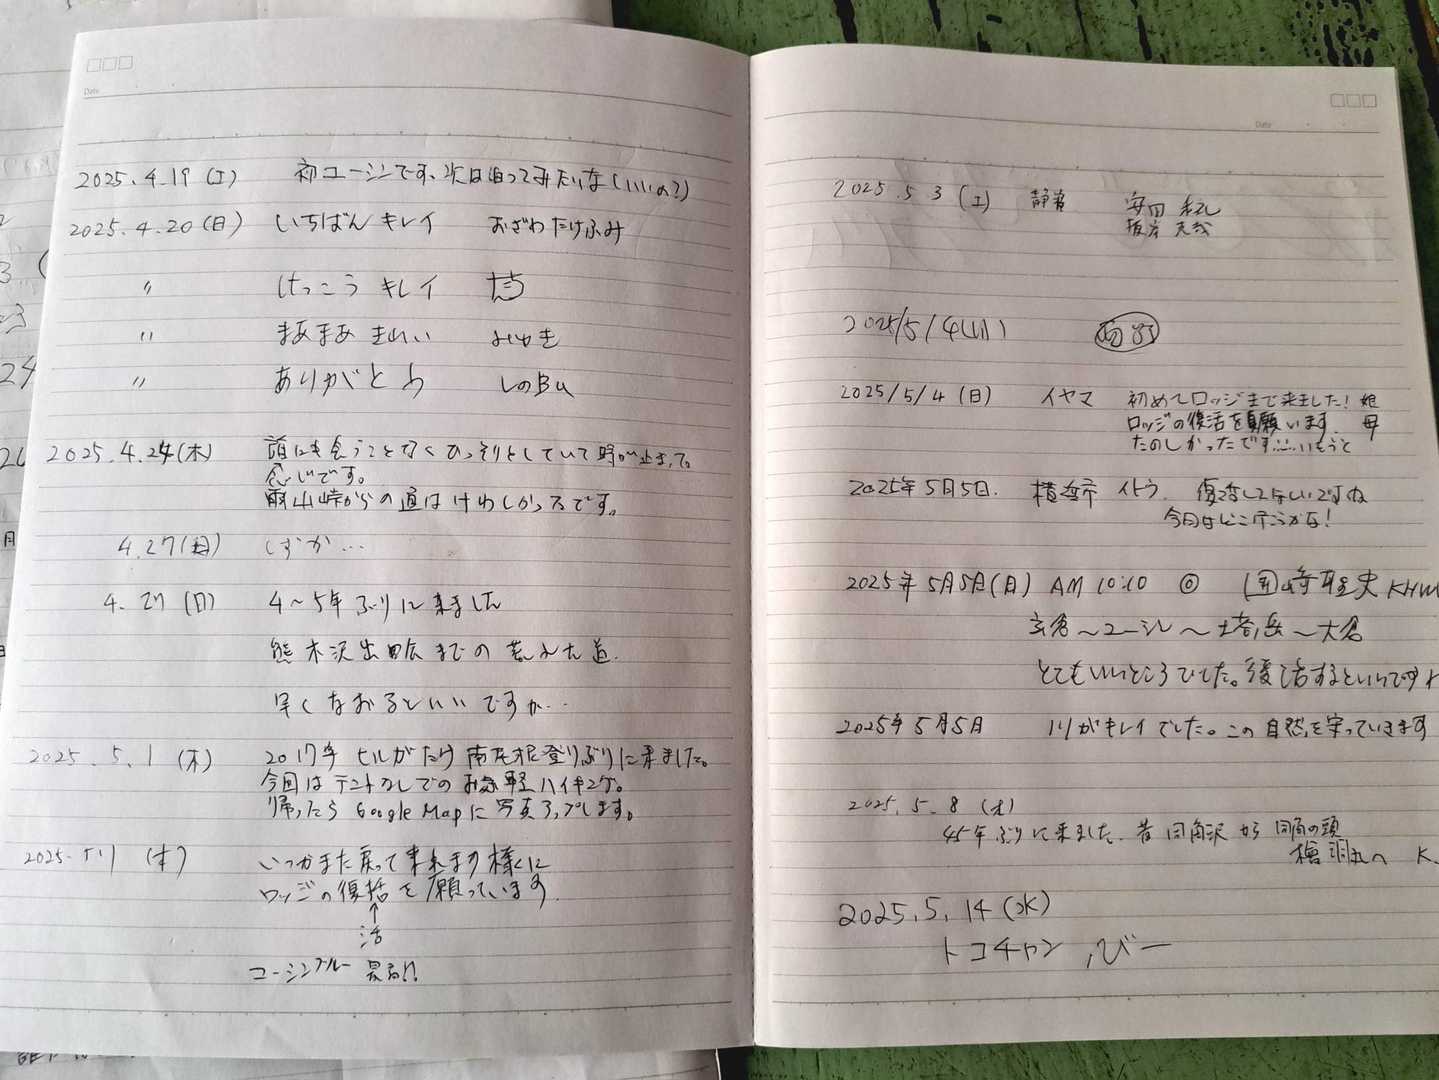 Date
2025.4.19(土) 初ユーシンです、次は泊ってみたいな(いいの?)
2025.4.20(日) いちばん キレイ おざわたけふみ
〃 けっこう キレイ
〃 まあまあ きれい みゆき
〃 ありがとう しのBu
2025.4.24(木) 誰にも会うことなくひっそりとしていて時が止まった
感じです。
雨山峠からの道はけわしかったです。
4.27(日) しずか…
4.27(日) 4〜5年ぶりに来ました
熊木沢出合までの荒れた道
早くなおるといいですが…
2025.5.1(木) 2017年ヒルがたけ南尾根登りぶりに来ました。
今回はテントなしでのお気軽ハイキング。
帰ったらGoogle Mapに写真アップします。
2025.5.1(木) いつかまた戻って来れます様に
ロッジの復括を願っています
↑
活
ユーシンブルー 最高!!
Date
2025.5.3(土) 静岡 安田
2025/5/4(日)
2025/5/4(日) イヤマ 初めてロッジまで来ました! 娘
ロッジの復活を願います 母
たのしかったです…いもうと
2025年5月5日. 横浜市 イトウ. 復活してほしいですね
今日はどこ行こうかな!
2025年5月5日(日) AM 10:10 ◎
玄倉〜ユーシン〜塔ノ岳〜大倉
とてもいいところでした。復活するといいですね
2025年5月5日 川がキレイでした。この自然を守っていきます
2025.5.8(木)
45年ぶりに来ました. 昔 同角沢から同角の頭
檜洞丸へ K.
2025.5.14(水)
トコチャン,びー